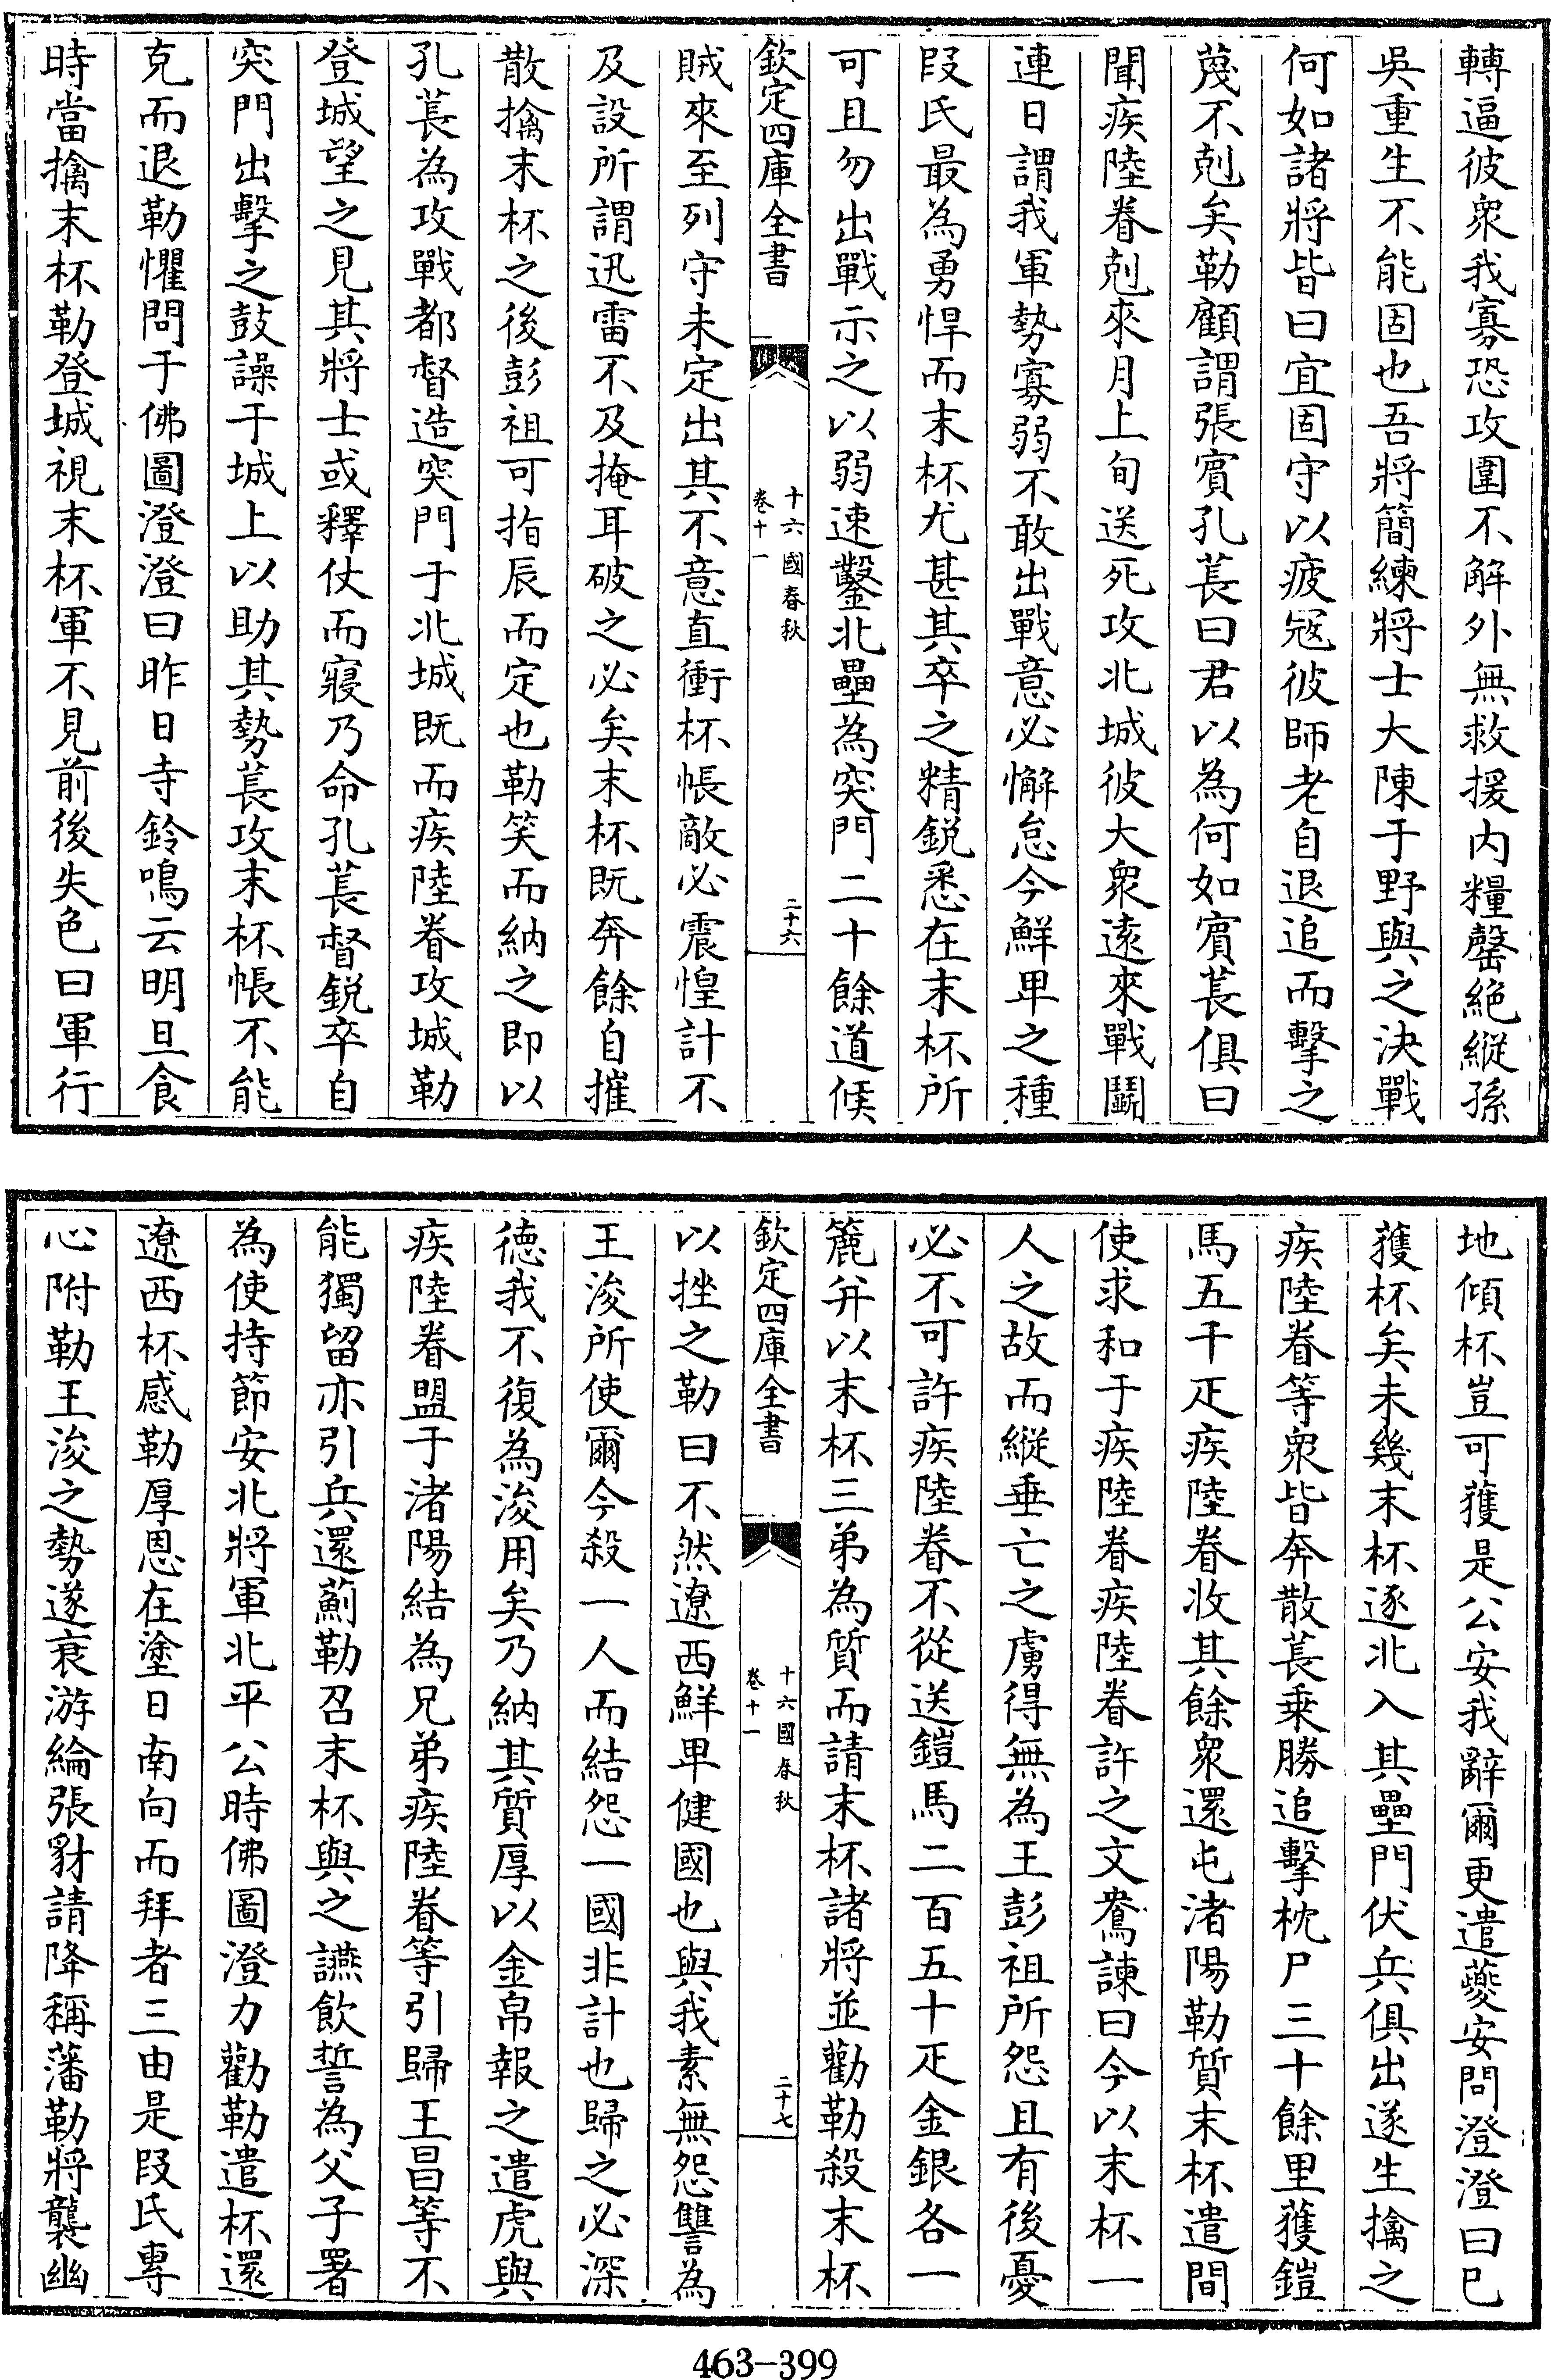 轉逼彼衆我寡恐攻圍不解外無救援内糧罄絶縱孫
吳重生不能固也吾將簡練將士大陳于野與之決戰
何如諸將皆曰宜固守以疲寇彼師老自退追而擊之
蔑不剋矣勒顧謂張賔孔萇曰君以為何如賔萇俱曰
聞疾陸眷剋來月上旬送死攻北城彼大衆逺來戰鬬
連日謂我軍勢寡弱不敢出戰意必懈怠今鮮卑之種
段氏最為勇悍而末杯尤甚其卒之精鋭悉在末杯所
可且勿出戰示之以弱速鑿北壘為突門二十餘道候
欽定四庫全書
十六國春秋
卷十一
二十六
賊來至列守未定出其不意直衝杯帳敵必震惶計不
及設所謂迅雷不及掩耳破之必矣末杯既奔餘自摧
散擒末杯之後彭祖可指辰而定也勒笑而納之即以
孔萇為攻戰都督造突門于北城既而疾陸眷攻城勒
登城望之見其將士或釋仗而寢乃命孔萇督鋭卒自
突門出擊之鼓譟于城上以助其勢萇攻末杯帳不能
克而退勒懼問于佛圖澄澄曰昨日寺鈴鳴云明旦食
時當擒末杯勒登城視末杯軍不見前後失色曰軍行
地傾杯豈可獲是公安我辭爾更遣夔安問澄澄曰已
獲杯矣未幾末杯逐北入其壘門伏兵俱出遂生擒之
疾陸眷等衆皆奔散萇乗勝追擊枕尸三十餘里獲鎧
馬五千疋疾陸眷收其餘衆還屯渚陽勒質末杯遣間
使求和于疾陸眷疾陸眷許之文鴦諫曰今以末杯一
人之故而縱垂亡之虜得無為王彭祖所怨且有後憂
必不可許疾陸眷不從送鎧馬二百五十疋金銀各一
簏并以末杯三弟為質而請末杯諸將並勸勒殺末杯
欽定四庫全書
十六國春秋
卷十一
二十七
以挫之勒曰不然遼西鮮卑健國也與我素無怨讐為
王浚所使爾今殺一人而結怨一國非計也歸之必深
徳我不復為浚用矣乃納其質厚以金帛報之遣虎與
疾陸眷盟于渚陽結為兄弟疾陸眷等引歸王昌等不
能獨留亦引兵還薊勒召末杯與之讌飲誓為父子署
為使持節安北將軍北平公時佛圖澄力勸勒遣杯還
遼西杯感勒厚恩在塗日南向而拜者三由是段氏專
心附勒王浚之勢遂衰游綸張豺請降稱藩勒將襲幽
463-399